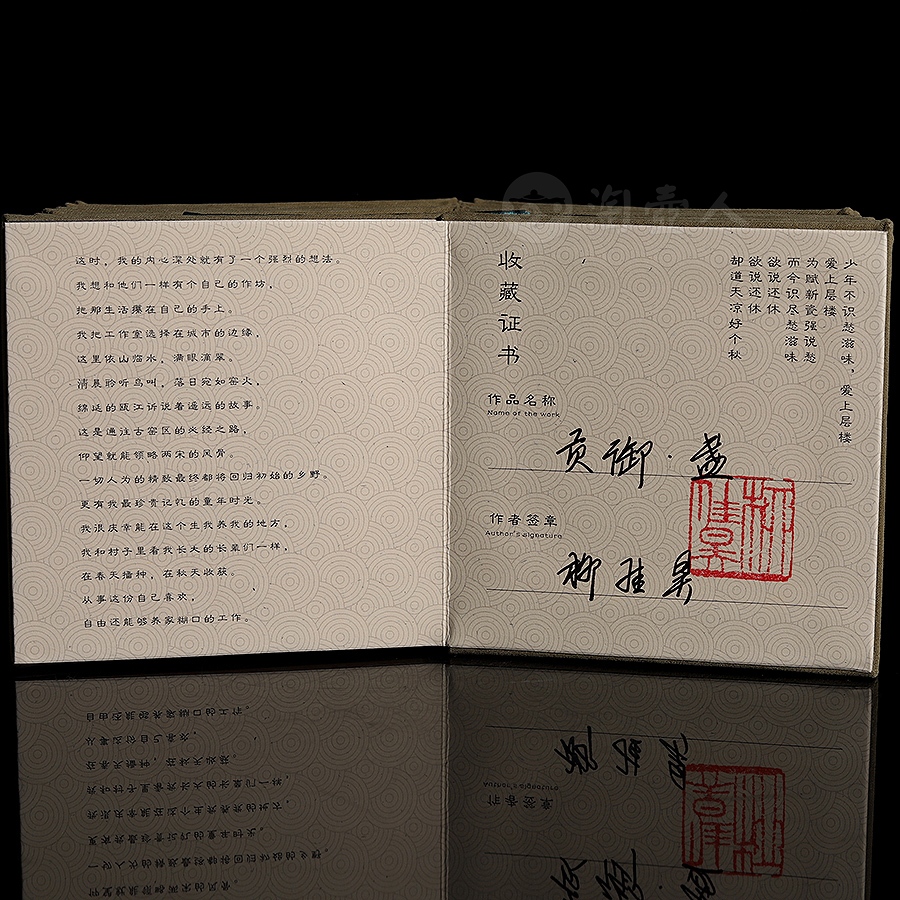 这时，我的内心深处就有了一个强烈的想法。
我想和他们一样有个自己的作坊，
把那生活攥在自己的手上。
我把工作室选择在城市的边缘，
这里依山临水，满眼滴翠。
清晨聆听鸟叫，落日宛如窑火，
绵延的瓯江诉说着遥远的故事。
这是通往古窑区的必经之路，
仰望就能领略两宋的风骨。
一切人为的精致最终都将回归初始的乡野。
更有我最珍贵记忆的童年时光。
我很庆幸能在这个生我养我的地方，
我和村子里看我长大的长辈们一样，
在春天播种，在秋天收获。
从事这份自己喜欢，
自由还能够养家糊口的工作。
淘壶人
收藏证书
少年不识愁滋味，爱上层楼
爱上层楼
为赋新瓷强说愁
而今识尽愁滋味
欲说还休
欲说还休
却道天凉好个秋
作品名称
Name of the work
贡御·盏
作者签章
Author's signature
柳佳昊